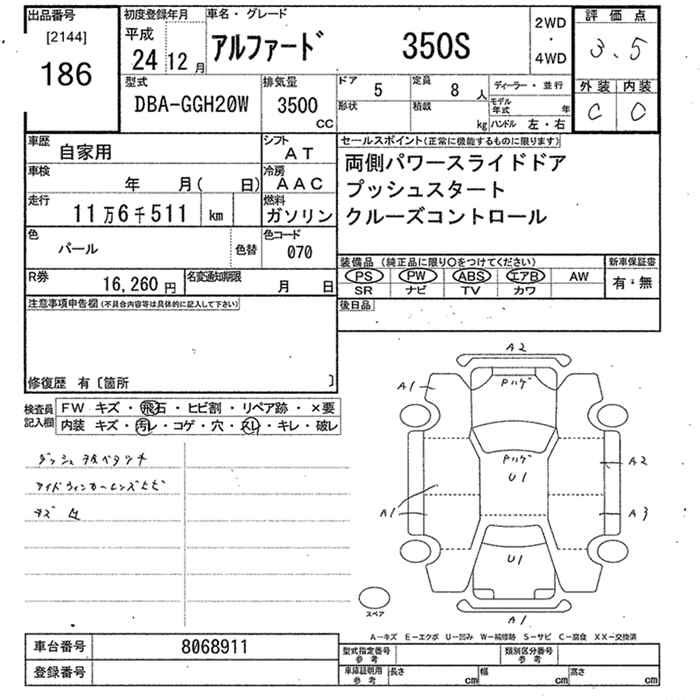 出品番号 初度登録年月 車名・グレード 2WD 評価点
[2144] 平成 ・
186 24 12月 アルファード 350S 4WD 3.5
型式 排気量 ドア 定員 ディーラー・並行 外装 内装
DBA-GGH20W 3500cc 5 8人 モデル年式 年 C C
形状 積載 kg ハンドル 左・右
車歴 自家用 シフト AT セールスポイント(正常に機能するものに限ります)
車検 年 月( 日) 冷房 AAC 両側パワースライドドア
走行 11万6千511 km 燃料 ガソリン プッシュスタート
クルーズコントロール
色 パール 色替 色コード 070
R券 16,260円 名変通知期限 月 日
装備品(純正品に限り○をつけてください) 新車保証書
PS PW ABS エアB AW 有・無
SR ナビ TV カワ
注意事項申告欄(不具合内容等は具体的に記入して下さい) 後日品
修復歴 有〔箇所 〕
検査員記入欄 FW キズ・飛石・ヒビ割・リペア跡・×要
内装 キズ・汚レ・コゲ・穴・スレ・キレ・破レ
A2
A1 Pハゲ
Pハゲ A2
U1
A1 A3
U1
A1
スペア
A-キズ E-エクボ U-凹み W-補修跡 S-サビ C-腐食 XX-交換済
車台番号 8068911 型式指定番号 参考 類別区分番号 参考
登録番号 車庫証明用 参考 長さ cm 幅 cm 高さ cm